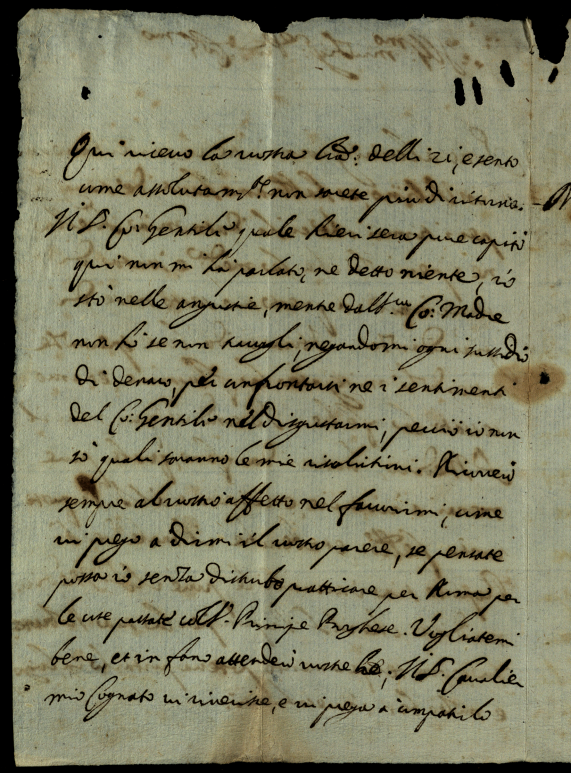 Qui ricevo la vostra delli 21, e sento
come assolutam.te non sarete più di ritorno.
Il S.r Co: Gentili quale hieri sera pure capitò
qui non mi hà parlato, ne detto niente, io
stò nelle angustie, mentre dalla Co: Madre
non hò se non travagli, negandomi ogni sussidio
di denaro, per confrontarsi ne i sentimenti
del Co: Gentili nel disgustarmi, perciò io non
sò quali saranno le mie risolutioni. Ricorro
sempre al vostro affetto nel favorirmi, come
vi prego a dirmi il vostro parere, se pensate
possa io senza disturbo pratticare per Roma per
le cose passate col S.r Principe Borghese. Vogliatemi
bene, et in fano attenderò vostre; Il S.r Cavalier
mio Cognato vi riverisce, e vi prega a compatirlo